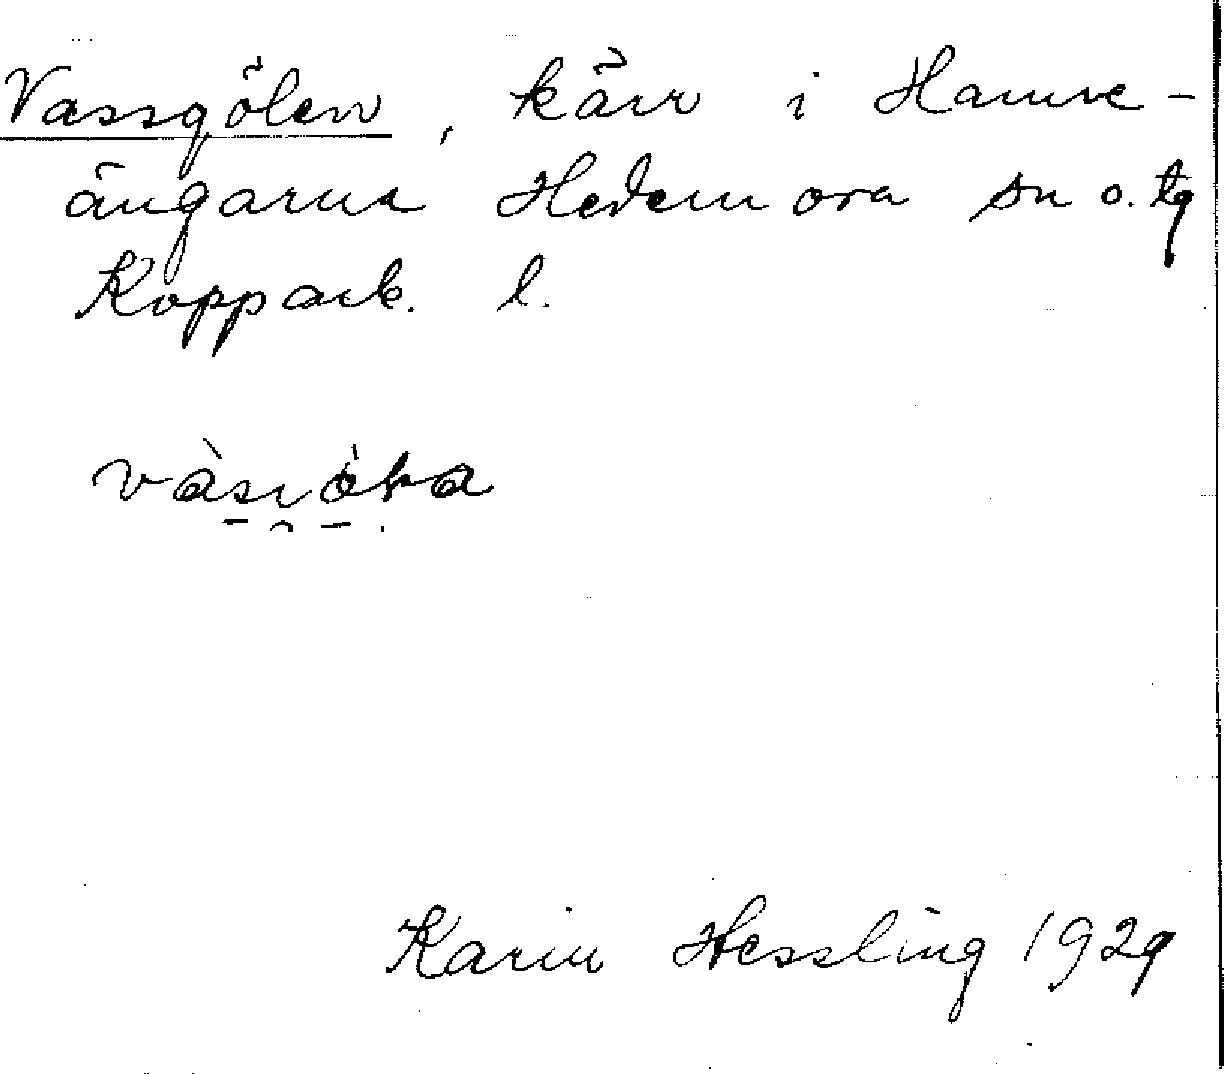 Vassgölen, kärr i Hamre-
ängarna Hedemora sn o. tg
Kopparb. l.
Karin Hessling 1929